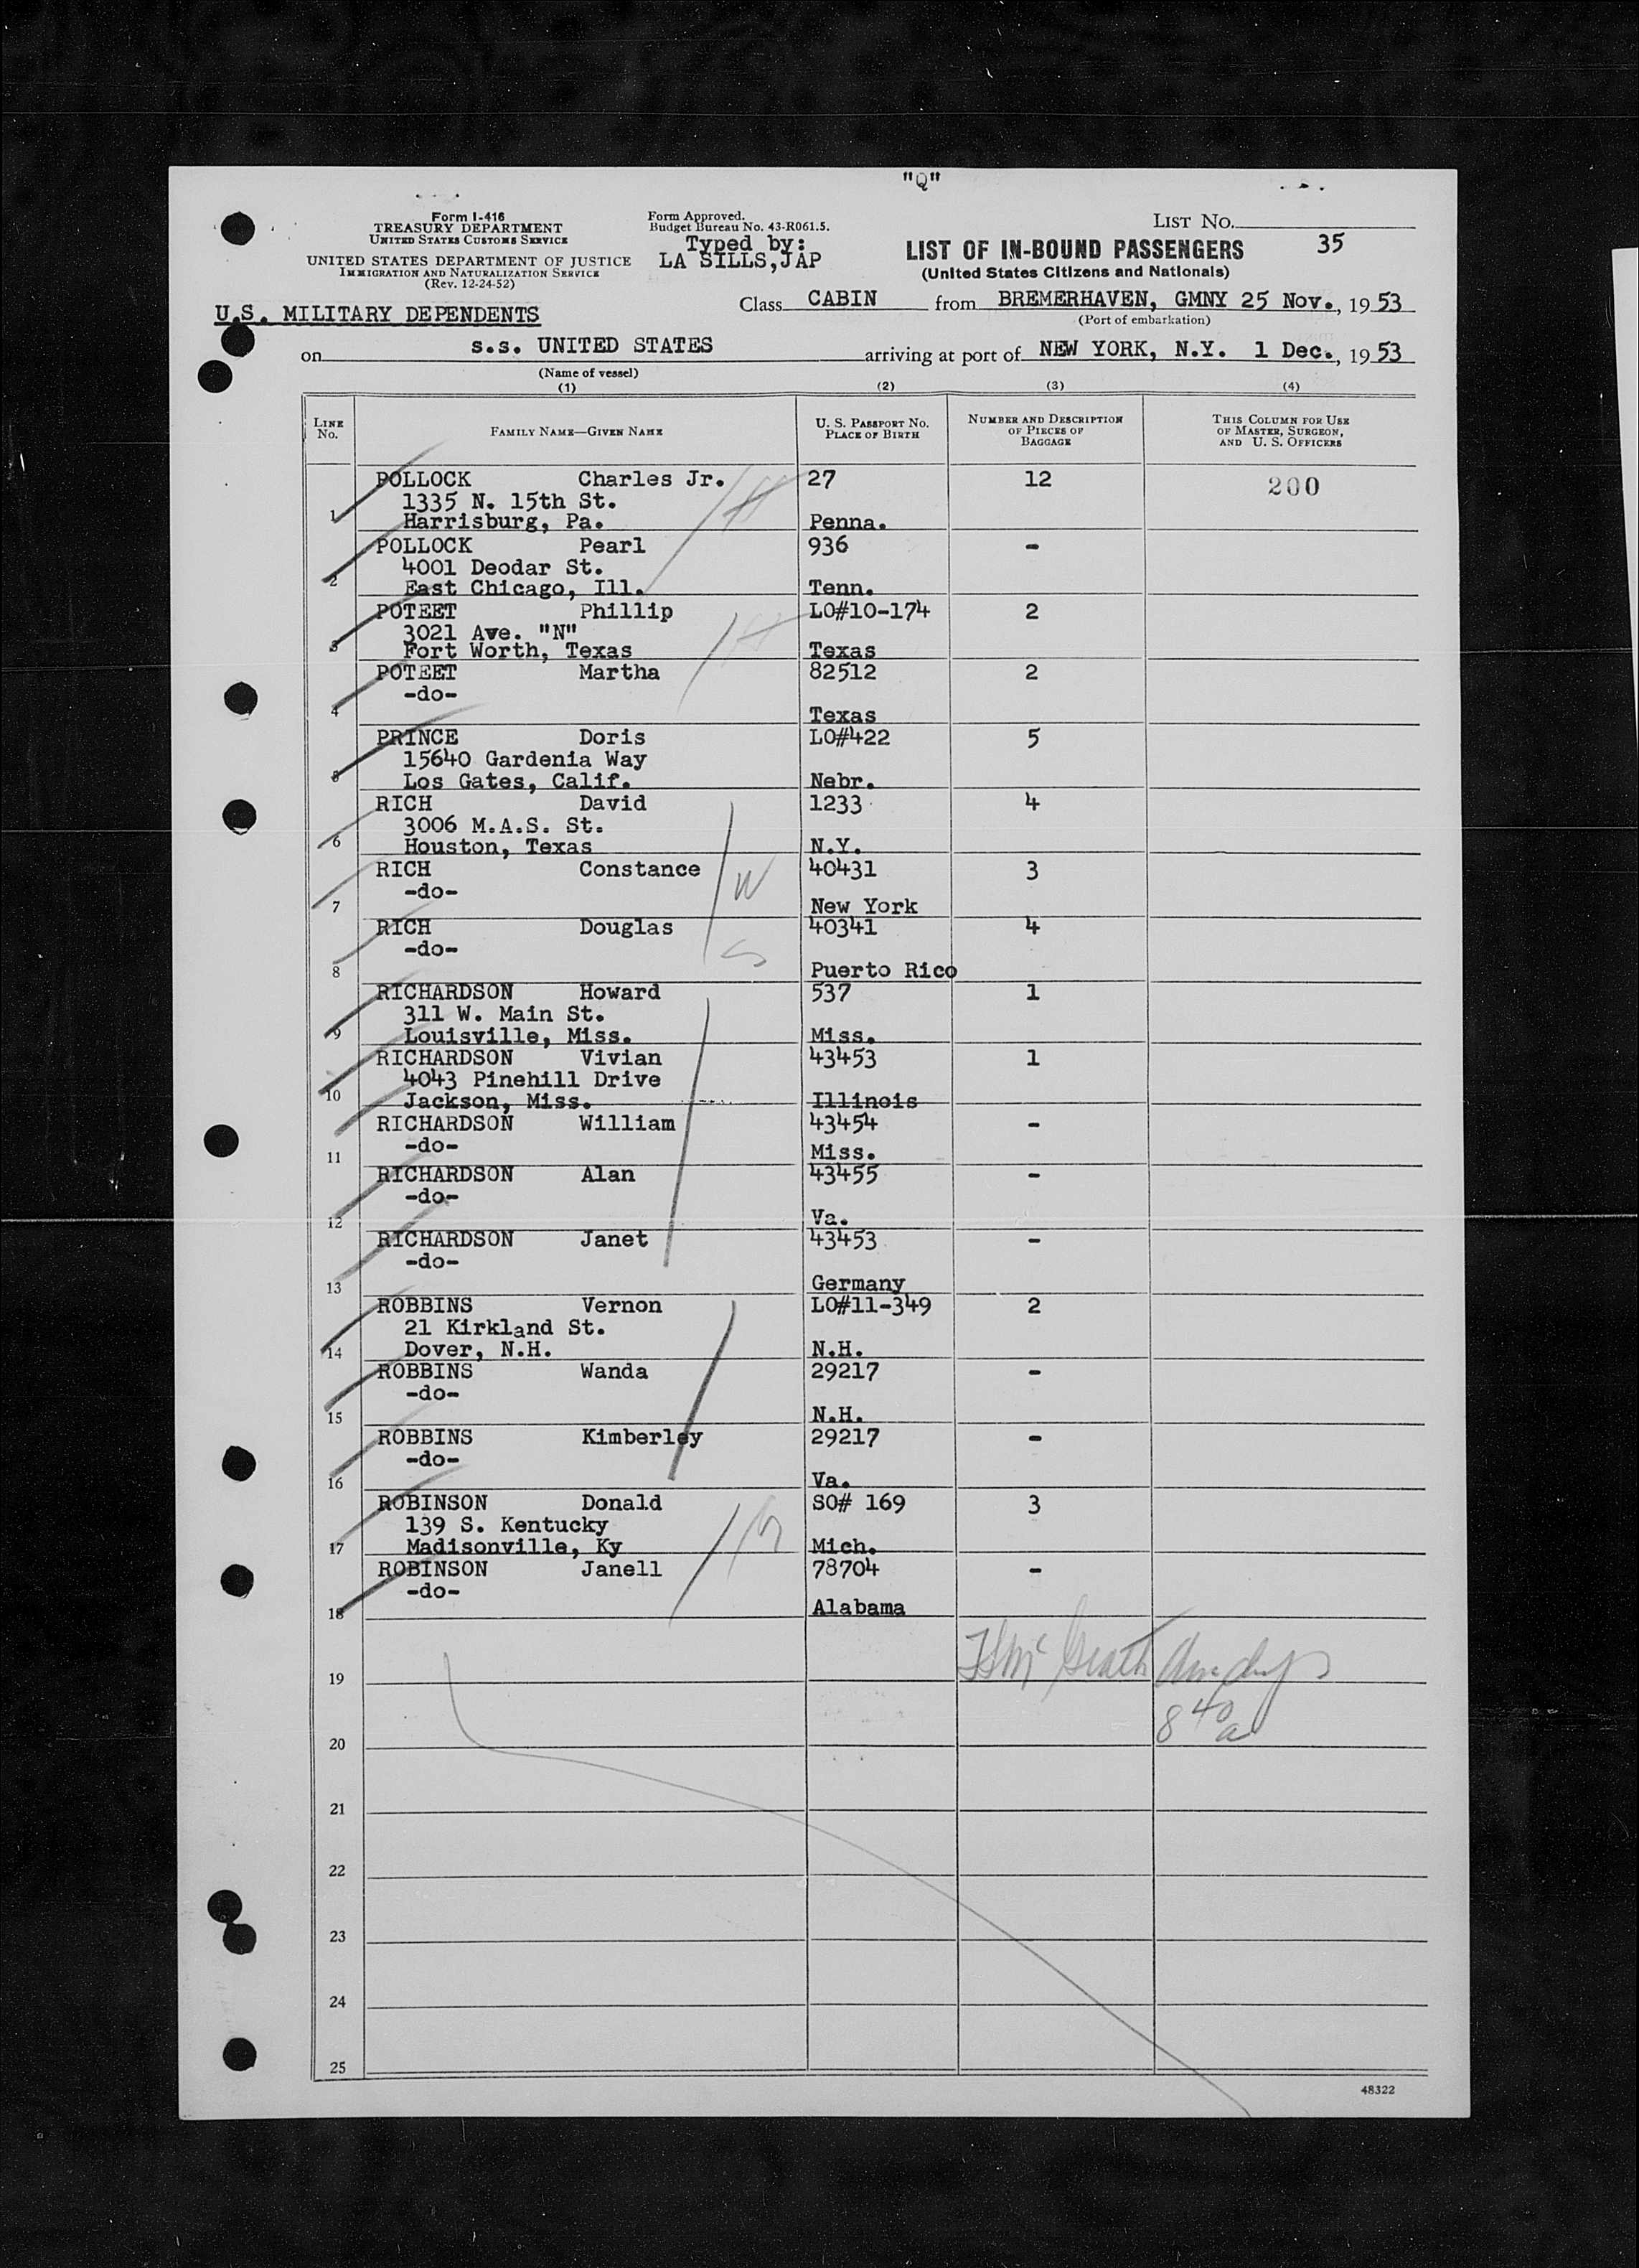 "Q"
Form I-416
TREASURY DEPARTMENT
UNITED STATES CUSTOMS SERVICE
UNITED STATES DEPARTMENT OF JUSTICE
IMMIGRATION AND NATURALIZATION SERVICE
(Rev. 12-24-52)
Form Approved.
Budget Bureau No. 43-R061.5.
Typed by:
LA SILLS,JAP
LIST NO.
35
LIST OF IN-BOUND PASSENGERS
(United States Citizens and Nationals)
U.S. MILITARY DEPENDENTS
Class CABIN from BREMERHAVEN, GMNY 25 Nov., 1953
(Port of embarkation)
on s.s. UNITED STATES arriving at port of NEW YORK, N.Y. 1 Dec., 1953
(Name of vessel)
(1) (2) (3) (4)
LINE No. FAMILY NAME—GIVEN NAME U. S. PASSPORT NO. PLACE OF BIRTH NUMBER AND DESCRIPTION OF PIECES OF BAGGAGE THIS COLUMN FOR USE OF MASTER, SURGEON, AND U. S. OFFICERS
POLLOCK Charles Jr. 27 12 200
1335 N. 15th St.
1 Harrisburg, Pa. Penna.
POLLOCK Pearl 936 -
4001 Deodar St.
2 East Chicago, Ill. Tenn.
POTEET Phillip LO#10-174 2
3021 Ave. "N"
3 Fort Worth, Texas Texas
POTEET Martha 82512 2
-do-
4 Texas
PRINCE Doris LO#422 5
15640 Gardenia Way
5 Los Gates, Calif. Nebr.
RICH David 1233 4
3006 M.A.S. St.
6 Houston, Texas N.Y.
RICH Constance 40431 3
-do- W
7 New York
RICH Douglas 40341 4
-do- S
8 Puerto Rico
RICHARDSON Howard 537 1
311 W. Main St.
9 Louisville, Miss. Miss.
RICHARDSON Vivian 43453 1
4043 Pinehill Drive
10 Jackson, Miss. Illinois
RICHARDSON William 43454 -
-do-
11 Miss.
RICHARDSON Alan 43455 -
-do-
12 Va.
RICHARDSON Janet 43453 -
-do-
13 Germany
ROBBINS Vernon LO#11-349 2
21 Kirkland St.
14 Dover, N.H. N.H.
ROBBINS Wanda 29217 -
-do-
15 N.H.
ROBBINS Kimberley 29217 -
-do-
16 Va.
ROBINSON Donald SO# 169 3
139 S. Kentucky
17 Madisonville, Ky Mich.
ROBINSON Janell 78704 -
-do-
18 Alabama
19
8 40 a
20
21
22
23
24
25
48322